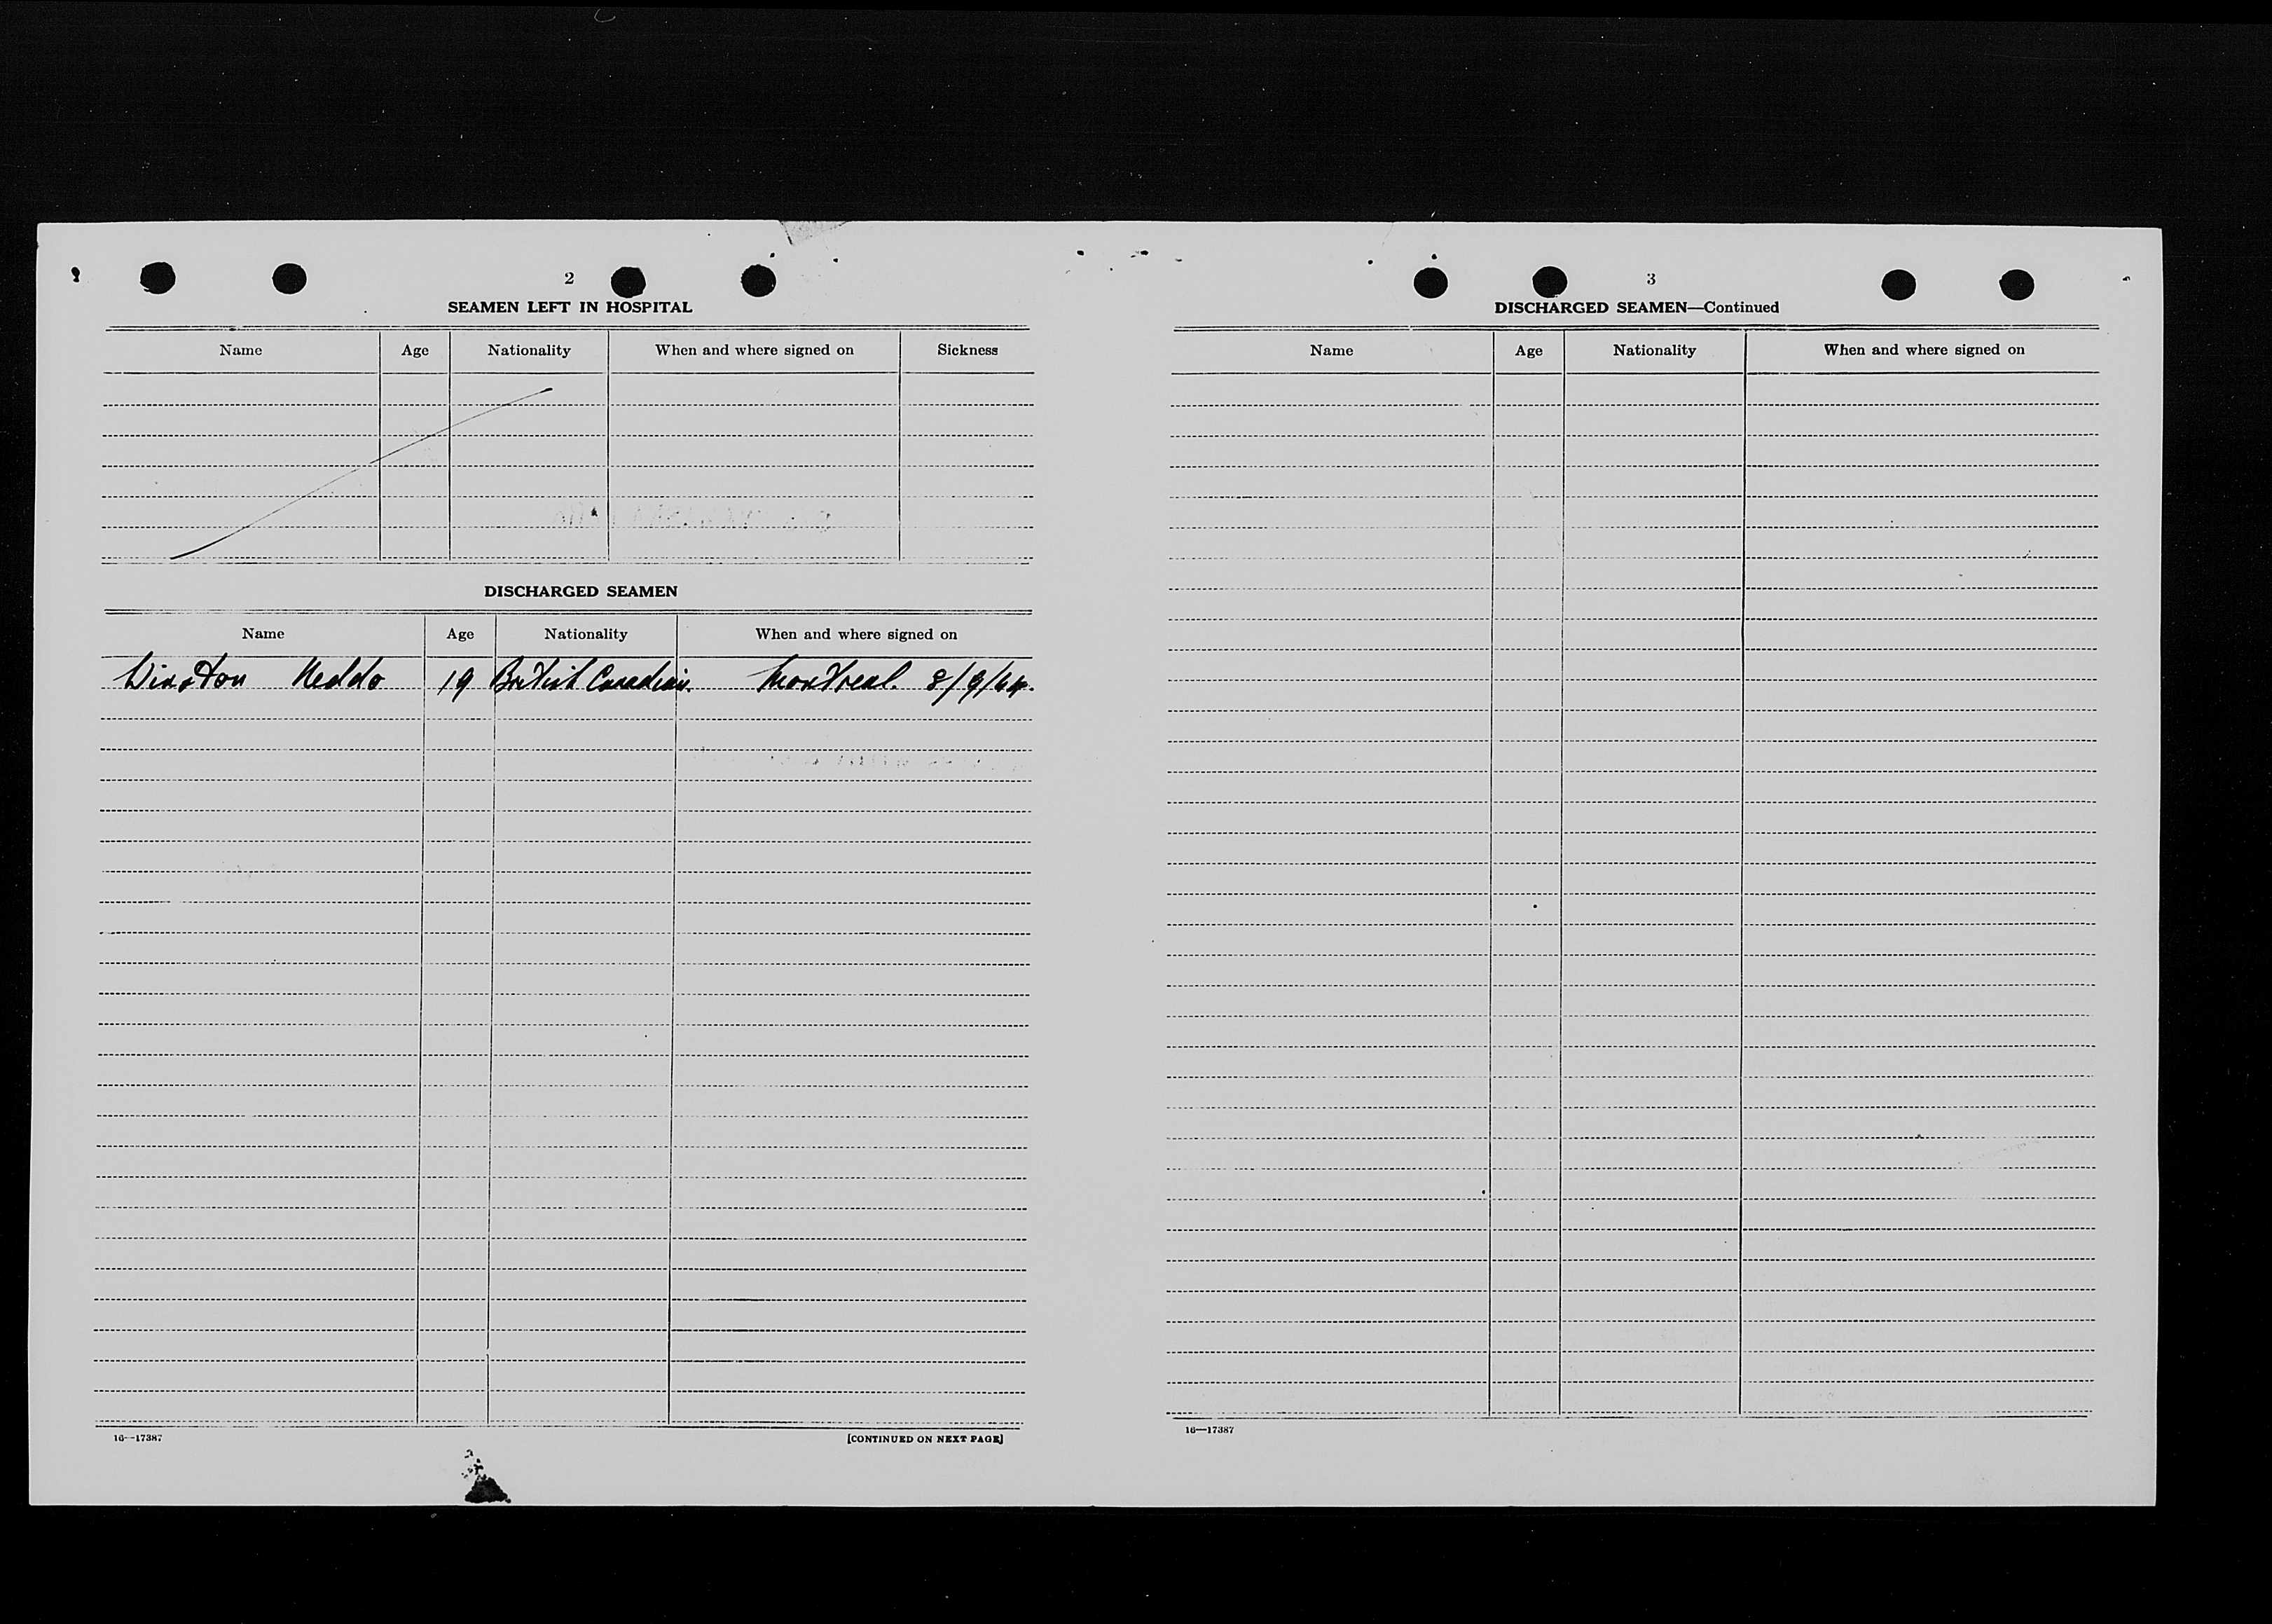 2
SEAMEN LEFT IN HOSPITAL
Name Age Nationality When and where signed on Sickness
DISCHARGED SEAMEN
Name Age Nationality When and where signed on
Winston Keddo 19 British Canadian. Montreal. 8/9/44.
16—17387 [CONTINUED ON NEXT PAGE]
3
DISCHARGED SEAMEN—Continued
Name Age Nationality When and where signed on
16—17387